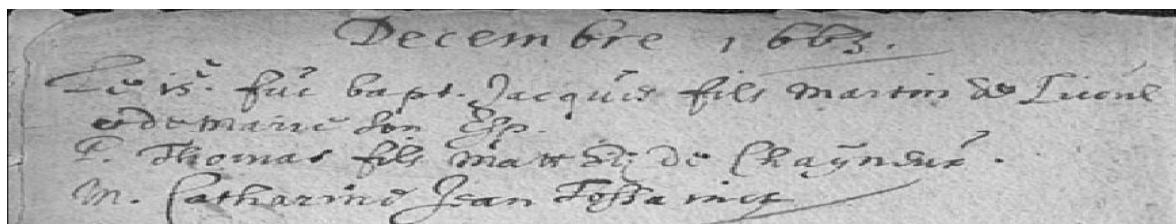 Decembre 1663.
Le 15e. fut bapt. Jacques fils Martin de
et de Marie son Esp.
P. Thomas fils de Chayneux.
M. Catharine Jean Tossainct